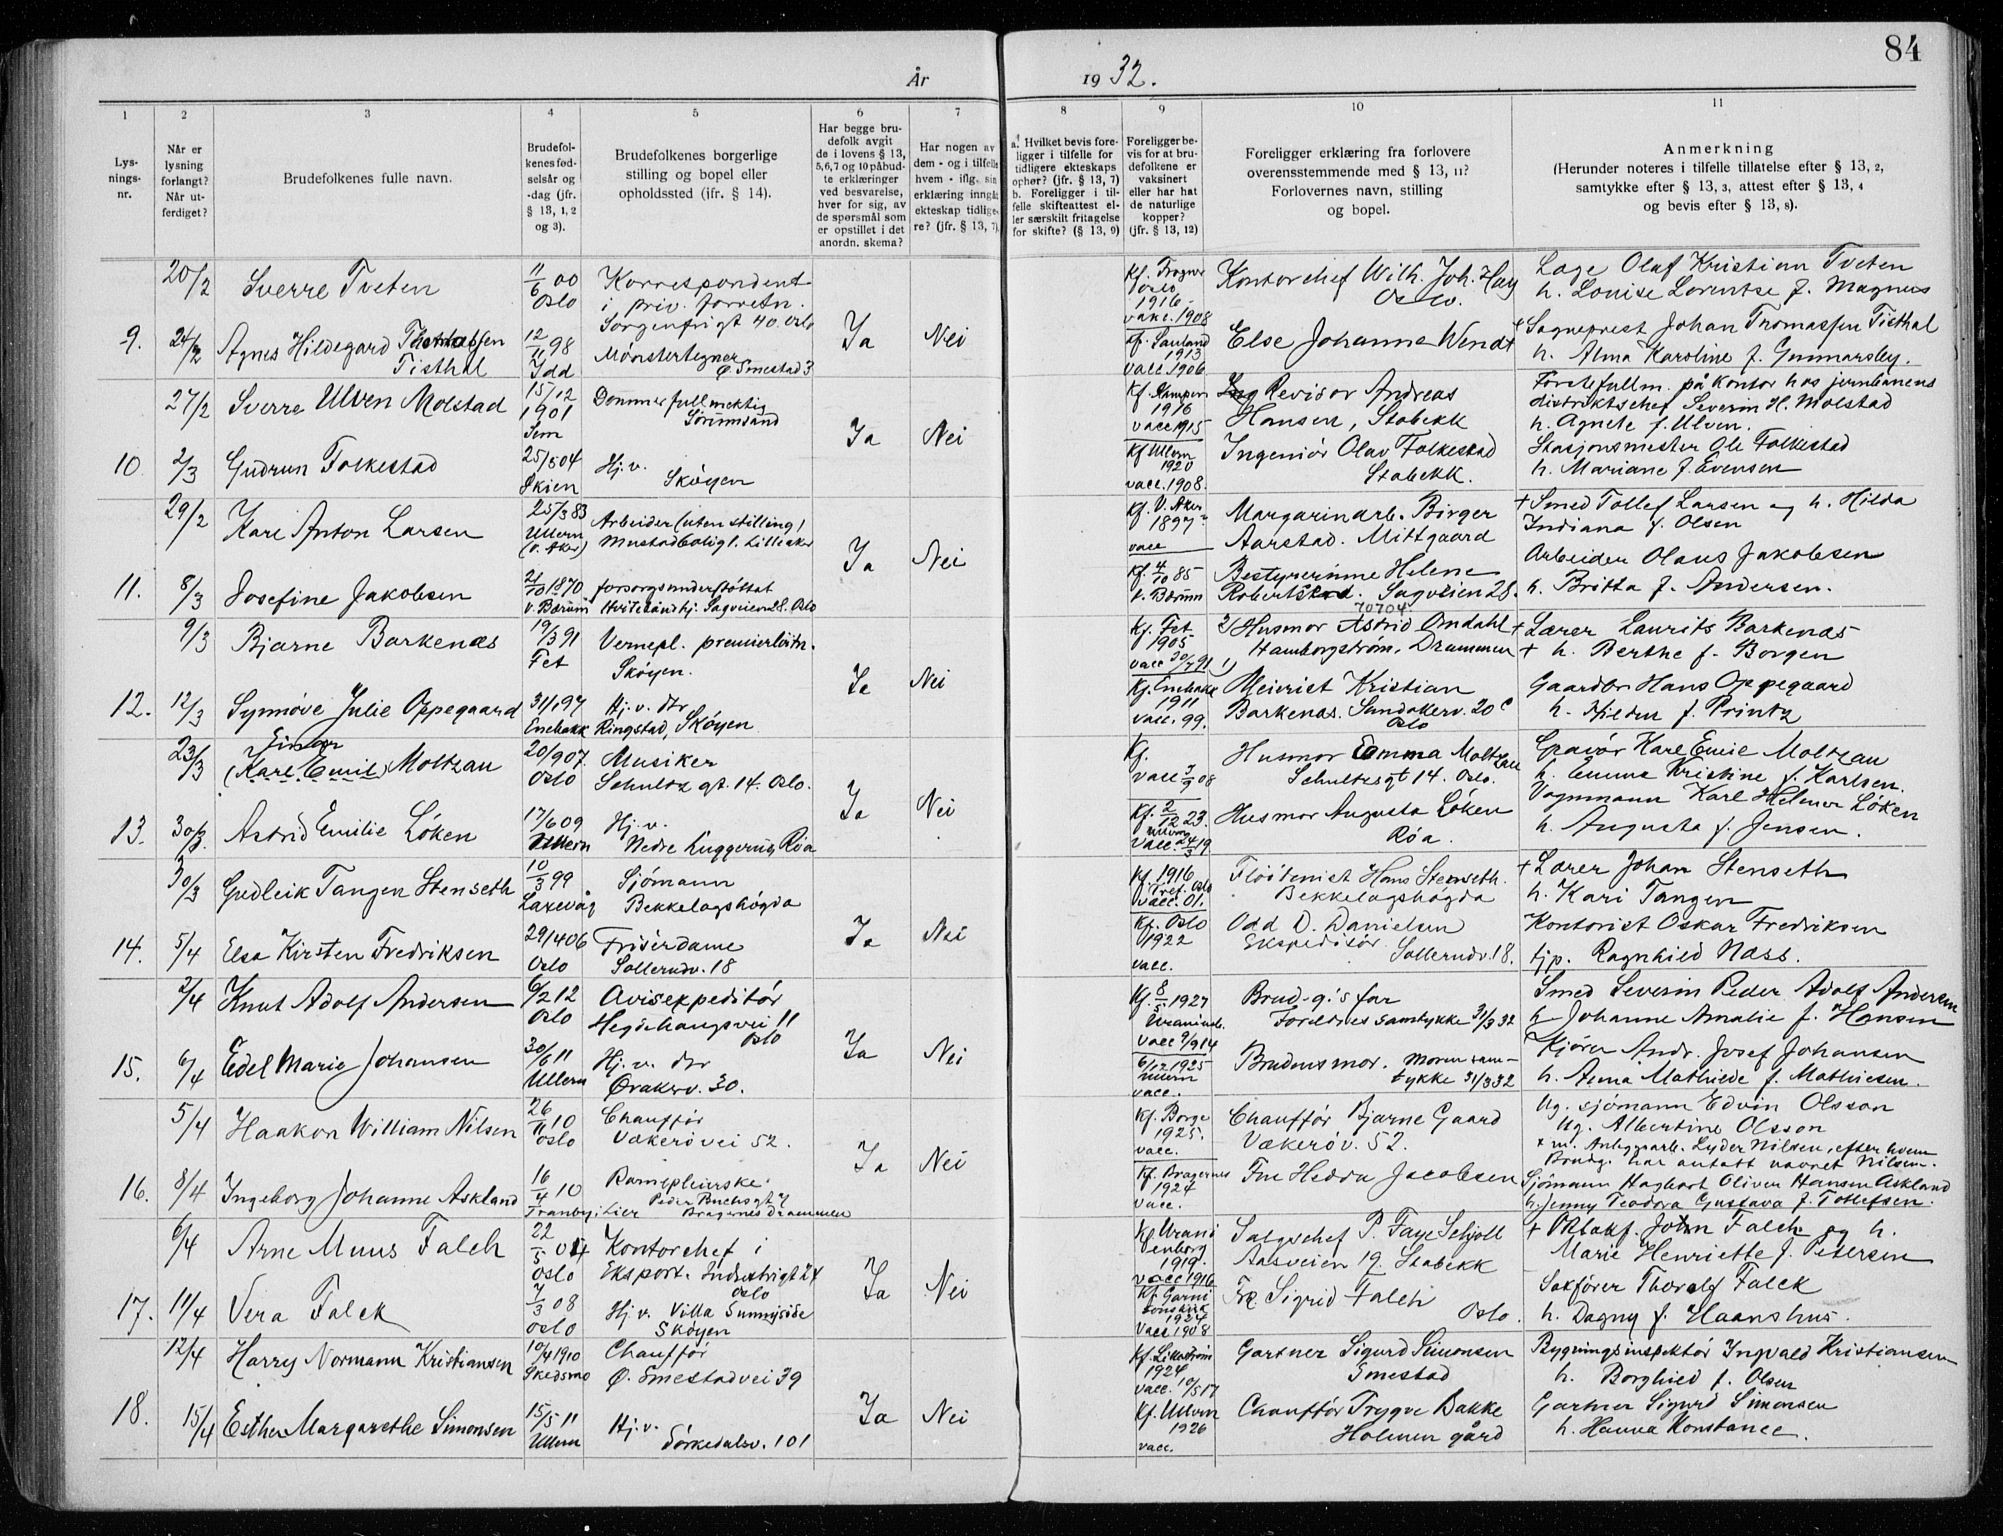 84
År 1932.
1 2 3 4 5 6 7 8 9 10 11
Lysningsnr.
Når er lysning forlangt? Når utferdiget?
Brudefolkenes fulle navn.
Brudefolkenes fødselsår og -dag (jfr. § 13, 1, 2 og 3).
Brudefolkenes borgerlige stilling og bopel eller opholdssted (jfr. § 14).
Har begge brudefolk avgit de i lovens § 13, 5,6,7 og 10 påbudte erklæringer ved besvarelse, hver for sig, av de spørsmål som er opstillet i det anordn. skema?
Har nogen av dem - og i tilfelle hvem - iflg. sin erklæring inngått ekteskap tidligere? (jfr. § 13, 7).
a. Hvilket bevis foreligger i tilfelle for tidligere ekteskaps ophør? (jfr. § 13, 7) b. Foreligger i tilfelle skifteattest eller særskilt fritagelse for skifte? (§ 13, 9)
Foreligger bevis for at brudefolkene er vaksinert eller har hat de naturlige kopper? (jfr. § 13, 12)
Foreligger erklæring fra forlovere overensstemmende med § 13, 11? Forlovernes navn, stilling og bopel.
Anmerkning
(Herunder noteres i tilfelle tillatelse efter § 13, 2, samtykke efter § 13, 3, attest efter § 13, 4 og bevis efter § 13, 8).
20/2 Sverre Tveten 11/6 00 Oslo Korrespondent i priv. forretn. Sorgenfrigt 40. Oslo
Kf. Frogner Oslo 1916 vakc. 1908 Kontorchef Wilh. Joh. Hay Oslo. Læge Olaf Kristian Tveten h. Louise Lorentse f. Magnus
9. 24/2 Agnes Hildegard Thomassen Tisthal 12/11 98 Idd Mønstertegner Ø. Smestad 3 Ja Nei
Kf. Sauland 1913 vacc. 1906 Else Johanne Wendt + Sogneprest Johan Thomassen Tisthal h. Alma Karoline f. Gunnarsby.
27/2 Sverre Ulven Molstad 15/12 1901 Sem Dommerfullmektig Sørumsand
Kf. Kampen 1916 vacc 1915 Revisor Andreas Hansen, Stabekk Førstefullm. på kontor hos jernbanens distriktschef Severin H. Molstad h. Agnete f. Ulven.
10. 2/3 Gudrun Folkestad 25/5 04 Skien Hj. v. Skøyen Ja Nei
Kf Ullern 1920 vacc. 1908. Ingeniør Olav Folkestad Stabekk. Stasjonsmester Ole Folkestad h. Mariane f. Evensen
29/2 Karl Anton Larsen 25/3 83 Ullern (V. Aker) Arbeider (uten stilling) Mustadboligl. Lilleaker
Kf. V. Aker 1897 vacc Margarinarb. Birger Aarstad. Mittgaard + Smed Tollef Larsen og h. Hilda Indiana f. Olsen
11. 8/3 Josefine Jakobsen 21/10 1870 V. Bærum forsorgsunderstøttet Hvitebåndhj. Sagveien 28. Oslo Ja Nei
Kf. 4/10 85 V. Bærum Bestyrerinne Helene Robertstad. Sagveien 28. 70704 Arbeider Olaus Jakobsen h. Britta f. Andersen.
9/3 Bjarne Barkenæs 19/3 91 Fet Vernepl. premierløitn. Skøyen.
Kf. Fet 1905 vacc 30/7 91 2) Husmor Astrid Omdahl Hamborgstrøm, Drammen + Lærer Laurits Barkenæs + h. Berthe f. Borgen
12. 12/3 Synnøve Julie Oppegaard 31/1 97 Enebakk Hj. v. dtr Ringstad, Skøyen Ja Nei
Kf. Enebakk 1911 vacc. 99. 1) Meierist Kristian Barkenæs. Sandakerv. 20 c Oslo Gaardbr Hans Oppegaard h. Hilda f. Printz
23/3 Einar (Karl Emil) Moltzau 20/9 07 Oslo Musiker Schultz gt. 14. Oslo.
Kf. vacc 7/9 08 Husmor Emma Moltzau Schultzgt 14. Oslo. Gravør Karl Emil Moltzau h. Emma Kristine f. Karlsen.
13. 30/3. Astrid Emilie Løken 17/6 09 Ullern Hj. v. Nedre Lüggerud, Røa Ja Nei
Kf. 2/12 23. Ullern vacc. 24/3 19 Husmor Augusta Løken Røa. Vognmann Karl Helmer Løken h. Augusta f. Jensen.
30/3 Gudleik Tangen Stenseth 10/3 99 Laxevåg Sjømann Bekkelagshøgda
Kf. 1916 Tref. Oslo vacc. 01. Fløitenist Hans Stenseth. Bekkelagshøgda + Lærer Johan Stenseth h. Kari Tangen
14. 5/4 Elsa Kirsten Fredriksen 29/4 06 Oslo Frisérdame Sollerudv. 18 Ja Nei
Kf. Oslo 1922 vacc. Odd D. Danielsen Ekspeditør Sollerudv. 18. Kontorist Oskar Fredriksen tjp. Ragnhild Næss.
2/4 Knut Adolf Andersen 6/2 12 Oslo Avisexpeditør Hegdehaugsvei 11 Oslo
Kf. 8/5 1927 Uranienb. vacc 7/9 14 Brud-g.'s far Foreldres samtykke 31/3 32 Smed Severin Peder Adolf Andersen h. Johanne Amalie f. Hansen
15. 6/4 Edel Marie Johansen 30/6 11 Ullern Hj. v. dtr Øvakerv. 30. Ja Nei
6/12 1925 Ullern vacc. Brudens mor. Moren samtykke 31/3 32 Kjører Andr. Josef Johansen h. Anna Mathilde f. Mathiesen.
5/4 Haakon William Nilsen 26/11 10 Oslo Chauffør Vækerøvei 52.
Kf. Borge 1925. vacc. Chauffør Bjarne Gaard Vækerøv. 52. Ug. sjømann Edvin Olsson Ug. Albertine Olsson x m. Anleggsarb. Lyder Nilsen, efter hvem Brudg. har antatt navnet Nilsen.
16. 8/4 Ingeborg Johanne Askland 16/4 10 Tranby, Lier Rampleierske Peder Buchsgt 7 Bragernes Drammen Ja Nei
Kf. Bragernes 1924 vacc. Fru Hedda Jacobsen Sjømann Hagbart Oliver Hansen Askland h. Jenny Teodora Gustava f. Tollefsen.
6/4 Arne Muus Falck 22/5 04 Oslo Kontorchef i Eksport. Industrigt 24 Oslo
Kf Uranienborg 1919. vacc 1916 Salgschef P. Faye Schjøll Aasveien 19. Stabekk + O.r.sakf. John Falck og h. Marie Henriette f. Petersen
17. 11/4 Vera Falck 7/3 08 Oslo Hj. v. Villa Sunnyside Skøyen Ja Nei
Kf. Garnisonskirk 1924 Vacc 1908 Frk Sigrid Falch Oslo. Sakfører Thoralf Falck h. Dagny f. Haanshus.
12/4 Harry Normann Kristiansen 10/4 1910 Skedsmo Chauffør Ø. Smestadvei 39
Kf. Lillestrøm 1924 vacc. 10/5 17 Gartner Sigurd Simonsen Smestad Bygningsinspektør Ingvald Kristiansen h. Borghild f. Olsen
18. 15/4 Esther Margarethe Simonsen 15/5 11 Ullern Hj. v. Sørkedalsv. 101 Ja Nei
Kf. Ullern 1926 vacc. Chauffør Trygve Bakke Holmen gård Gartner Sigurd Simonsen h. Hanna Konstance.